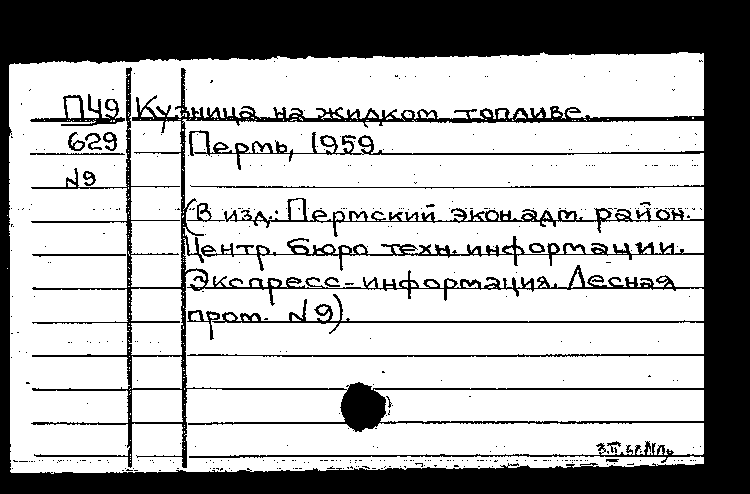 П49 Кузница на жидком топливе.
629 Пермь, 1959.
N9
(В изд.: Пермский экон.адм. район.
Центр. бюро техн. информации.
Экспресс-информация. Лесная
пром. N9).